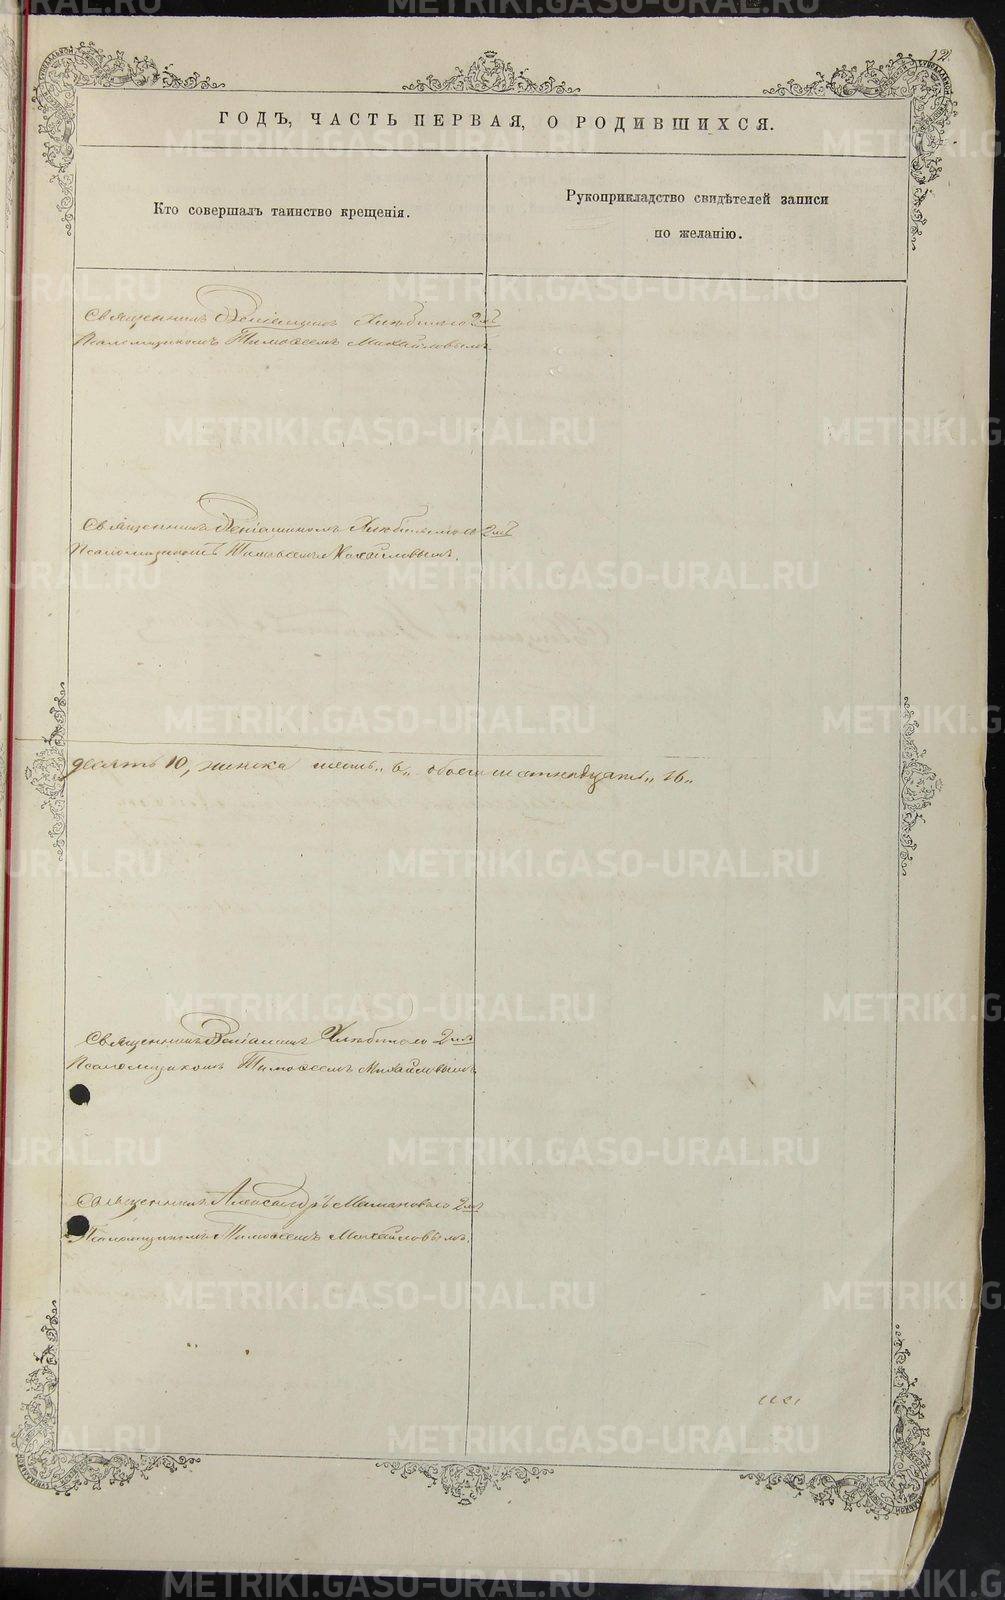 12
ГОДЪ, ЧАСТЬ ПЕРВАЯ, О РОДИВШИХСЯ.
Кто совершалъ таинство крещенія.
Рукоприкладство свидѣтелей записи
по желанію.
Священникъ Веніаминъ 2мъ
Псаломщикомъ Тимоѳеемъ Михайловымъ
Священникъ Веніаминомъ 2мъ
Псаломщикомъ Тимоѳеемъ Михайловымъ.
десять 10, женска шесть „6„ обоего шестнадцать „16„
Священникъ Веніаминъ 2мъ
Псаломщикомъ Тимоѳеемъ Михайловымъ.
Священникъ Александръ 2мъ
Псаломщикомъ Тимоѳеемъ Михайловымъ.
METRIKI.GASO-URAL.RU